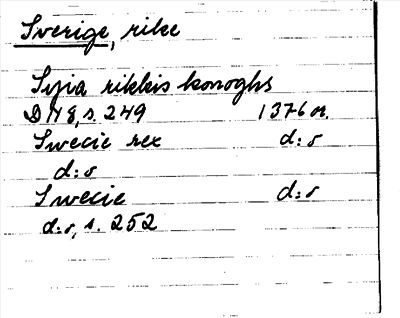 Sverige, rike
Syia rikkis konoghs
DN8, s. 249 1376 n.
Swecie rex d:o
d:o
Swecie d:o
d:o, s. 252